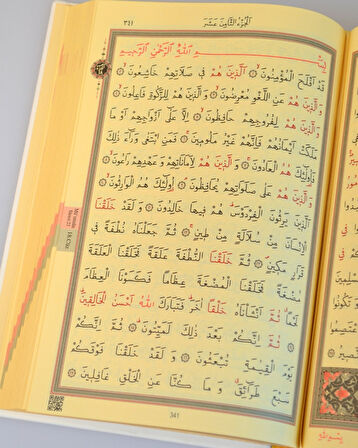 اَلْجُزْءُ الثَّامِنَ عَشَرَ ٣٤١
بِسْــــمِ اللّٰهِ الرَّحْمٰنِ الرَّحِيمِ
قَدْ اَفْلَحَ الْمُؤْمِنُونَ ۝ اَلَّذِينَ هُمْ فِى صَلَاتِهِمْ خَاشِعُونَ ۝
وَالَّذِينَ هُمْ عَنِ اللَّغْوِ مُعْرِضُونَ ۝ وَالَّذِينَ هُمْ لِلزَّكٰوةِ فَاعِلُونَ ۝
وَالَّذِينَ هُمْ لِفُرُوجِهِمْ حَافِظُونَ ۝ اِلَّا عَلٰٓى اَزْوَاجِهِمْ اَوْ مَا
مَلَكَتْ اَيْمَانُهُمْ فَاِنَّهُمْ غَيْرُ مَلُومِينَ ۝ فَمَنِ ابْتَغٰى وَرَٓاءَ ذٰلِكَ
فَاُولٰٓئِكَ هُمُ الْعَادُونَ ۝ وَالَّذِينَ هُمْ لِاَمَانَاتِهِمْ وَعَهْدِهِمْ رَاعُونَ ۝
وَالَّذِينَ هُمْ عَلٰى صَلَوَاتِهِمْ يُحَافِظُونَ ۝ اُولٰٓئِكَ هُمُ الْوَارِثُونَ ۝
اَلَّذِينَ يَرِثُونَ الْفِرْدَوْسَ هُمْ فِيهَا خَالِدُونَ ۝ وَلَقَدْ خَلَقْنَا
الْاِنْسَانَ مِنْ سُلَالَةٍ مِنْ طِينٍ ۝ ثُمَّ جَعَلْنَاهُ نُطْفَةً فِى
قَرَارٍ مَكِينٍ ۝ ثُمَّ خَلَقْنَا النُّطْفَةَ عَلَقَةً فَخَلَقْنَا الْعَلَقَةَ
مُضْغَةً فَخَلَقْنَا الْمُضْغَةَ عِظَامًا فَكَسَوْنَا الْعِظَامَ
لَحْمًا ثُمَّ اَنْشَاْنَاهُ خَلْقًا اٰخَرَ فَتَبَارَكَ اللّٰهُ اَحْسَنُ الْخَالِقِينَ ۝
ثُمَّ اِنَّكُمْ بَعْدَ ذٰلِكَ لَمَيِّتُونَ ۝ ثُمَّ اِنَّكُمْ
يَوْمَ الْقِيٰمَةِ تُبْعَثُونَ ۝ وَلَقَدْ خَلَقْنَا فَوْقَكُمْ
سَبْعَ طَرَٓائِقَ وَمَا كُنَّا عَنِ الْخَلْقِ غَافِلِينَ
341